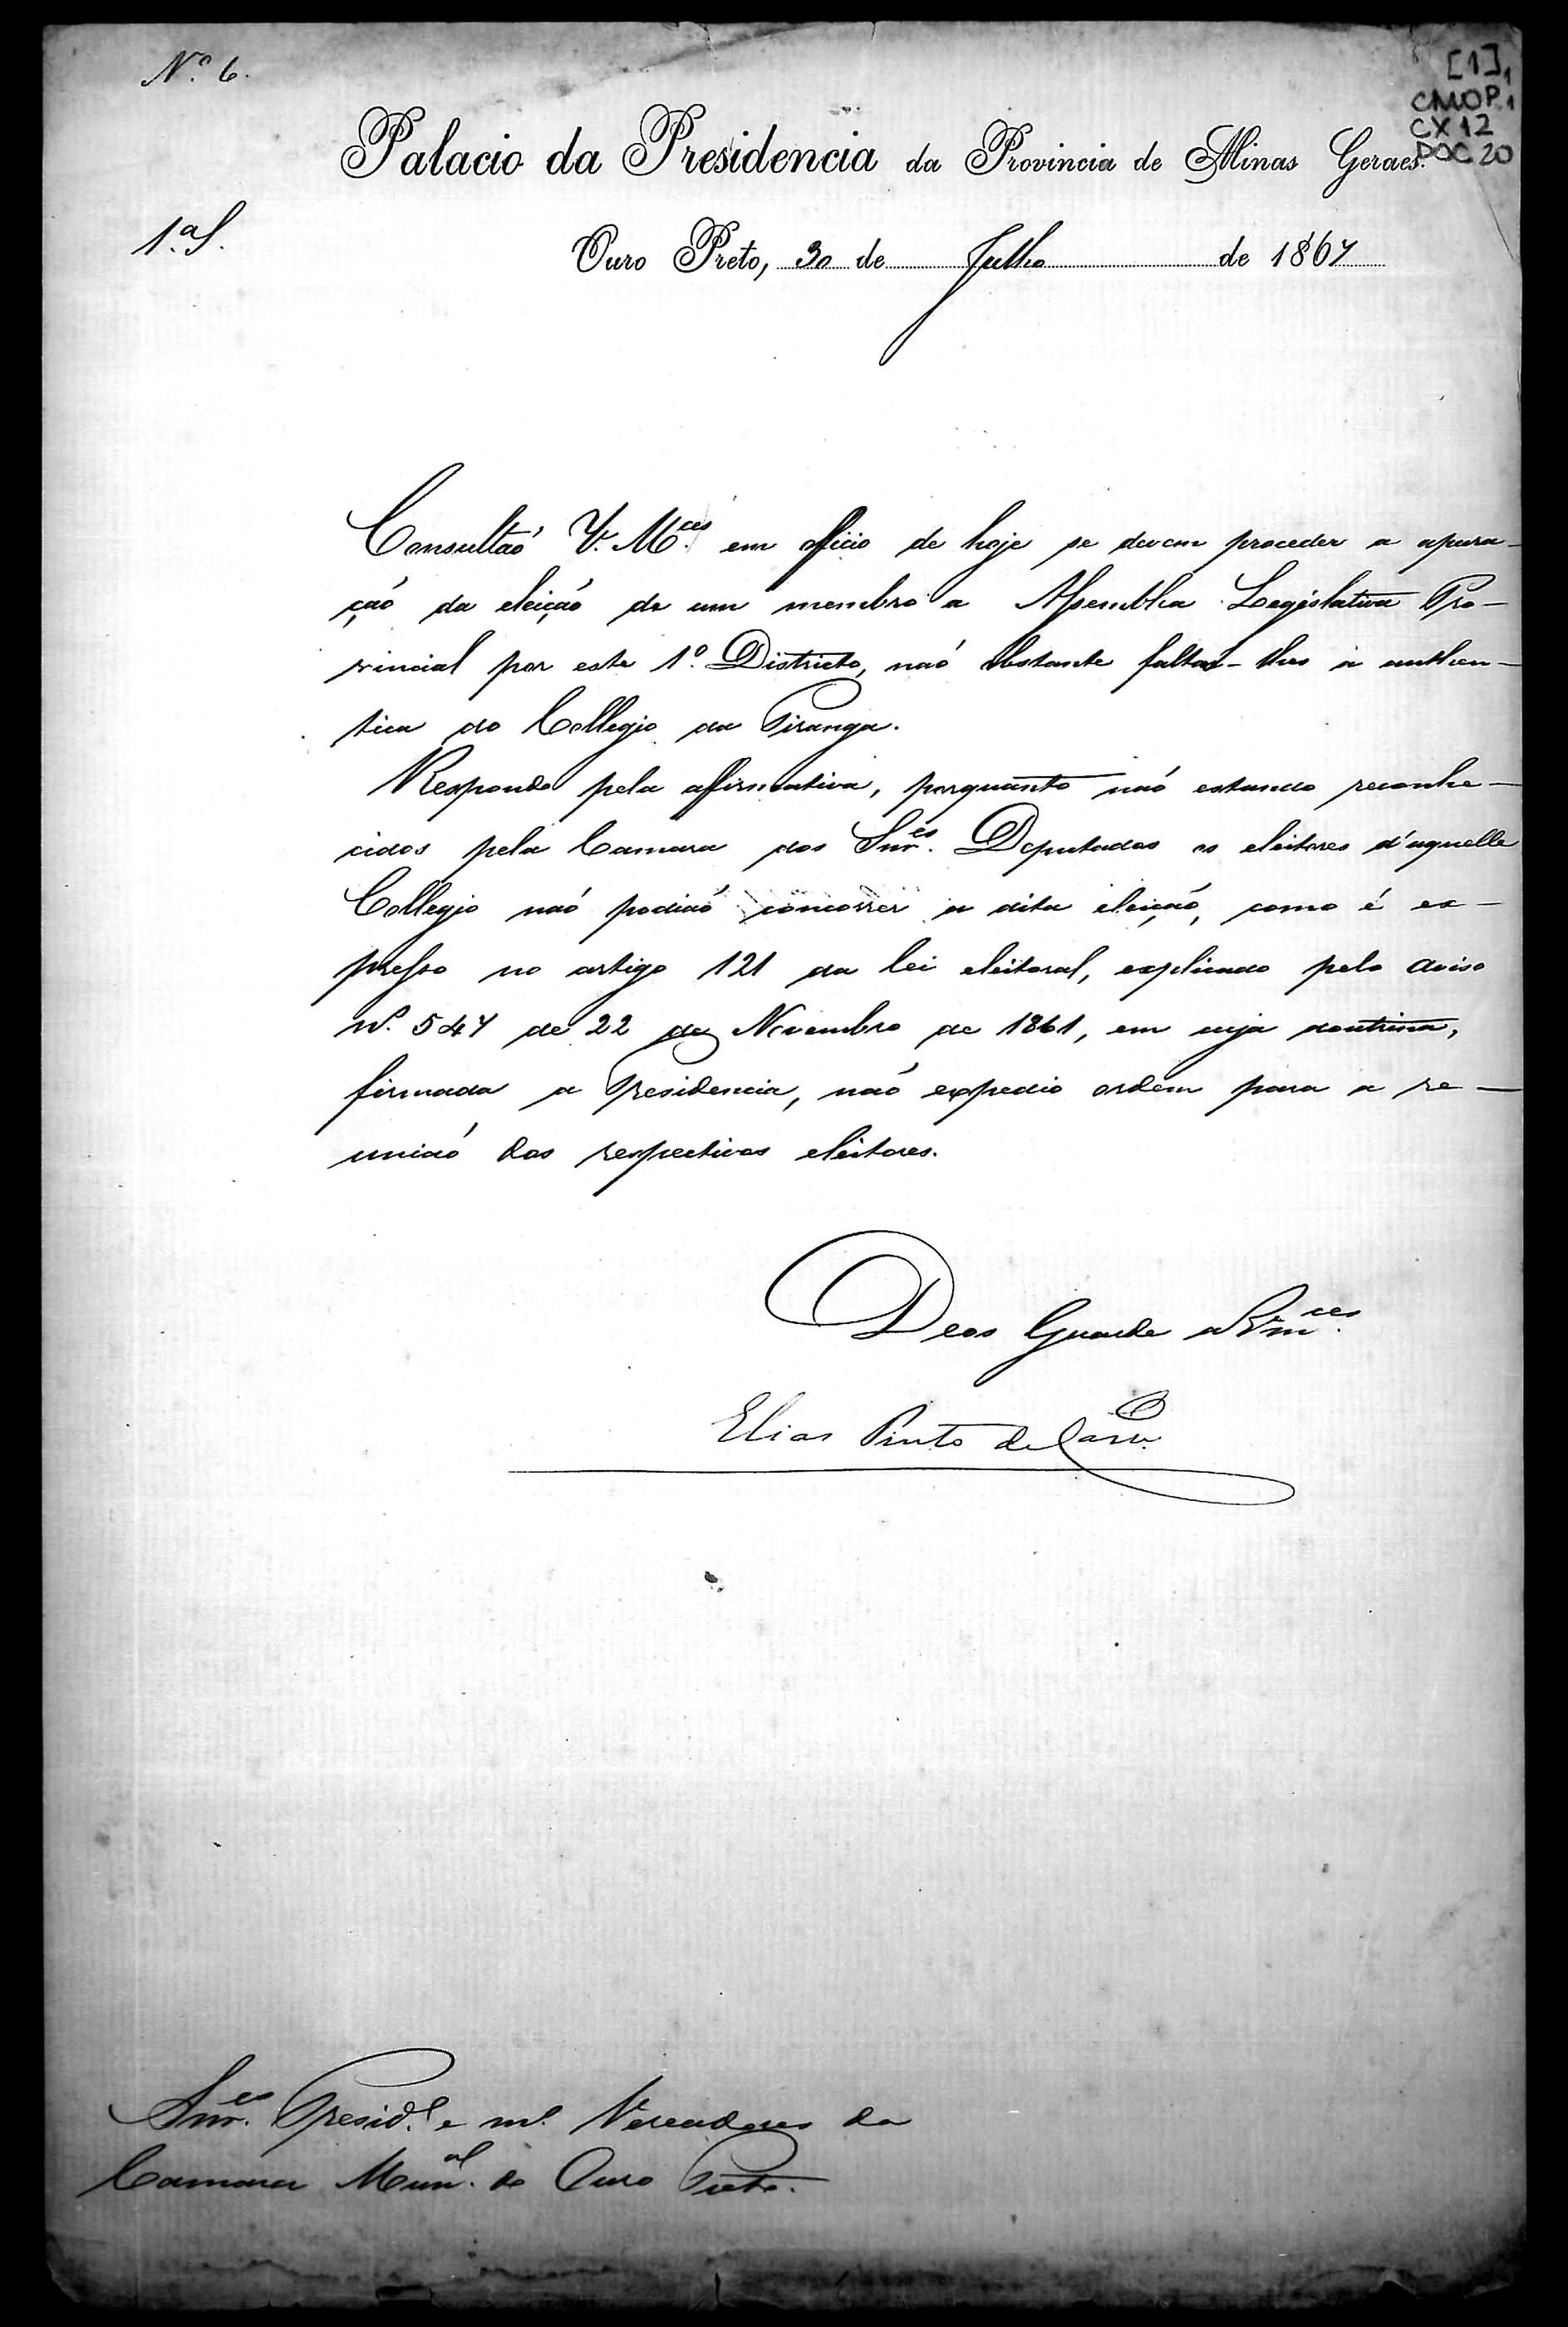 Nº 6.
[1]
CMOP
CX 12
DOC 20
Palacio da Presidencia da Provincia de Minas Geraes.
1.ª S.
Ouro Preto, 30 de Julho de 1867
Consultaõ V. M.ces em officio de hoje se devem proceder a apura-
çaõ da eleiçaõ de um membro a Assemblea Legislativa Pro-
vincial por este 1º Districto, naõ obstante faltar-lhes a authen-
tica do Collegio da Piranga.
Respondo pela affirmativa, porquanto naõ estando reconhe-
cidos pela Camara dos Snr.es Deputados os eleitores d'aquelle
Collegio naõ podiaõ concorrer a dita eleiçaõ, como é ex-
presso no artigo 121 da lei eleitoral, explicado pelo aviso
nº. 547 de 22 de Novembro de 1861, em cuja doutrina,
firmada a Presidencia, naõ expedio ordem para a re-
uniaõ dos respectivos eleitores.
Deos Guarde a Vm.ces
Elias Pinto de Carv.º
Snr.es Presid.e e Vereadores da
Camara Mun.al de Ouro Preto.